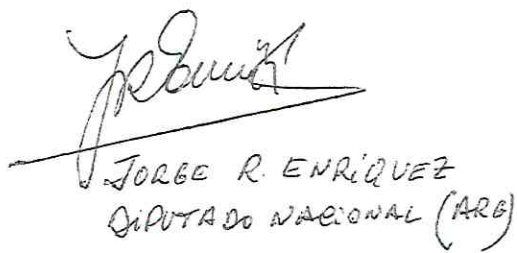 JORGE R. ENRIQUEZ
DIPUTADO NACIONAL (ARG)